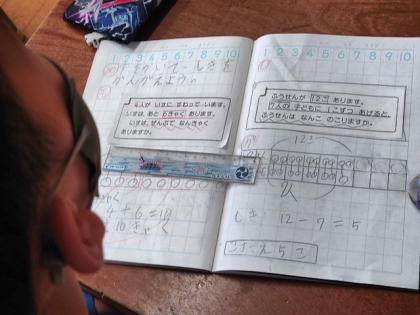 1 2 3 4 5 6 7 8 9 10
ずをかいて しきを
かんがえよう。
4人が いすに すわって います。
いすは、あと 6きゃく あります。
いすは、ぜんぶで なんきゃく
ありますか。
4+6=10
10きゃく
1 2 3 4 5 6 7 8 9 10
ふうせんが 12こ あります。
7人の 子どもに 1こずつ あげると、
ふうせんは なんこ のこりますか。
12こ
しき 12-7=5
こたえ 5こ